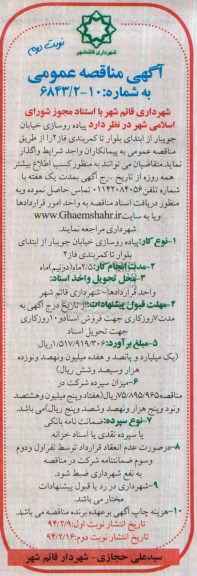 شهرداری قائمشهر
نوبت دوم
آگهی مناقصه عمومی
به شماره: ۱۰-۶۸۴۳/۲
شهرداری قائم شهر با استناد مجوز شورای
اسلامی شهر در نظر دارد پیاده روسازی خیابان
جویبار از ابتدای بلوار تا کمربندی فاز۲ را از طریق
مناقصه عمومی به پیمانکاران واجد شرایط واگذار
نماید.متقاضیان می توانند به منظور کسب اطلاع بیشتر
همه روزه از تاریخ درج آگهی بمدت یک هفته با
شماره تلفن ۰۱۱۴۲۰۸۴۰۵۶ تماس حاصل نموده و به
منظور دریافت اسناد مناقصه به واحد امور قراردادها
و یا به سایت www.Ghaemshahr.ir
شهرداری مراجعه نمایند.
۱-نوع کار: پیاده روسازی خیابان جویبار از ابتدای
بلوار تا کمربندی فاز۲
۲-مدت انجام کار: ۲/۵ماه(دونیم)ماه
۳-محل تحویل واخذ اسناد:
واحد قراردادها- شهرداری قائم شهر
۴-مهلت قبول پیشنهادات: از تاریخ درج آگهی به
مدت۷روزکاری جهت فروش اسنادو ۱۰روزکاری
جهت تحویل اسناد
۵-مبلغ برآورد: ۱/۵۱۷/۹۱۹/۳۰۶ریال
(یک میلیارد و پانصد و هفده میلیون ونهصد ونوزده
هزار وسیصد وشش ریال)
۶-میزان سپرده شرکت در
مناقصه ۷۵/۸۹۵/۹۶۵ریال(هفتاد وپنج میلیون وهشتصد
ونود وپنج هزار ونهصد وشصد وپنج ریال)می باشد.
۷-نوع سپرده: ضمانت نامه بانکی
یا سپرده نقدی یا اسناد خزانه.
۸-درصورت عدم انعقاد قرارداد توسط نفراول ودوم
وسوم ضمانتنامه شرکت در مناقصه
به نفع شهرداری ضبط شود.
۹-شهرداری در رد یا قبول پیشنهادات
مختار می باشد.
۱۰-هزینه چاپ آگهی برعهده برنده مناقصه می باشد.
تاریخ انتشار نوبت اول: ۹۴/۲/۹
تاریخ انتشار نوبت دوم: ۹۴/۲/۱۶
سیدعلی حجازی- شهردار قائم شهر